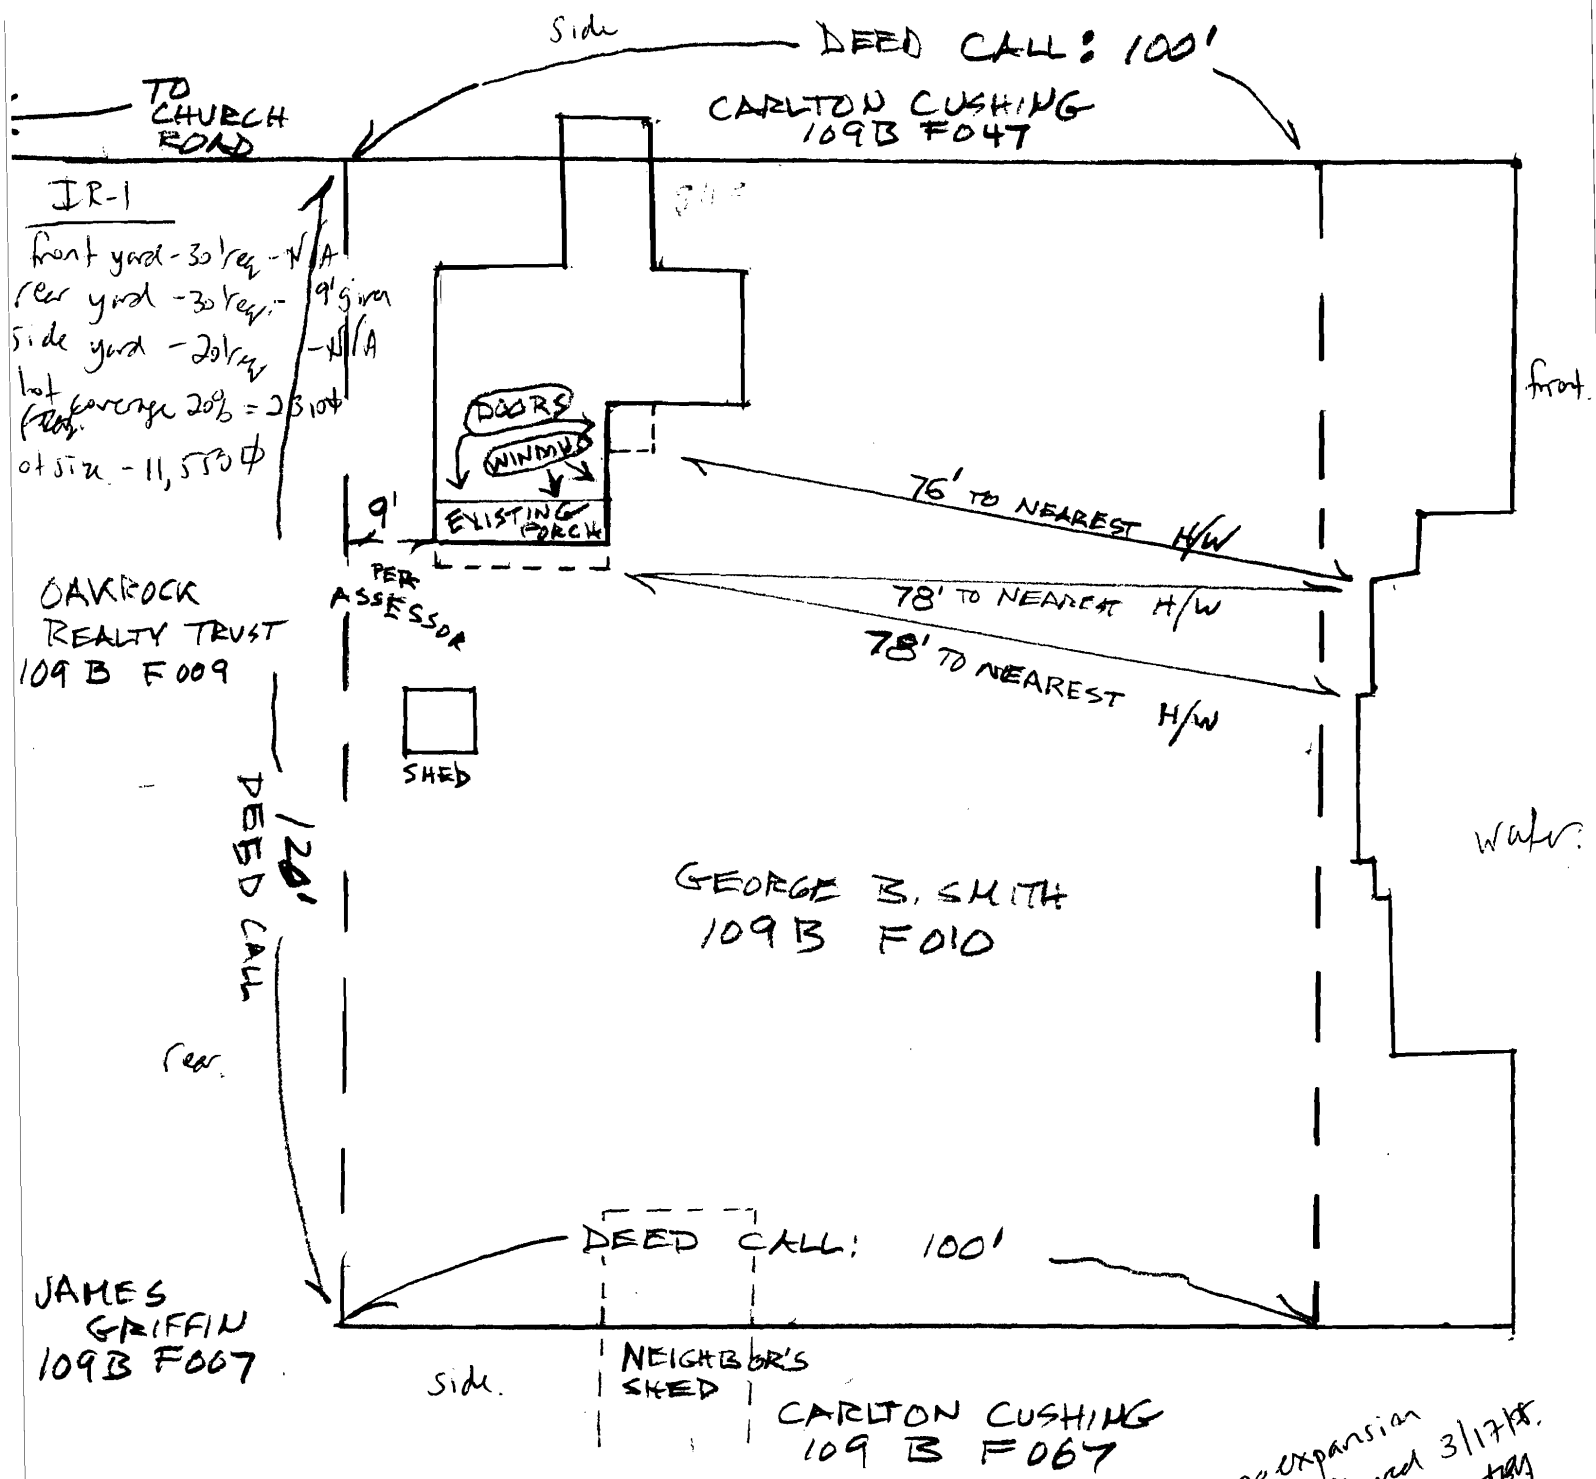 side
DEED CALL: 100'
TO
CHURCH
ROAD
CARLTON CUSHING
109B F047
IR-1
front yard - 30' req - N/A
rear yard - 30' req. - 9' given
side yard - 20' req - N/A
lot
coverage 20% = 2310 ϕ
ot size - 11,553 ϕ
front.
DOORS
WINDWS
EXISTING
PORCH
9'
PER
ASSESSOR
76' TO NEAREST H/W
78' TO NEAREST H/W
78' TO NEAREST H/W
OAKROCK
REALTY TRUST
109 B F009
SHED
120'
DEED CALL
water.
GEORGE B. SMITH
109 B F010
rear.
DEED CALL: 100'
JAMES
GRIFFIN
109B F007
side.
NEIGHBOR'S
SHED
CARLTON CUSHING
109 B F067
expansion
3/17/